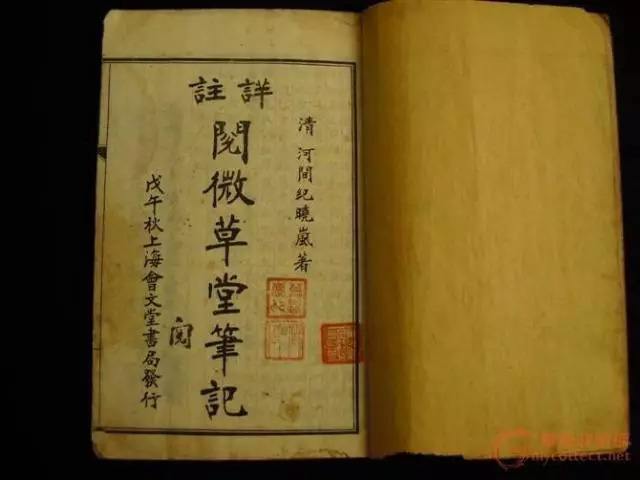 清 河間紀曉嵐著
詳註
閱微草堂筆記
閱
戊午秋上海會文堂書局發行
mycollect.net